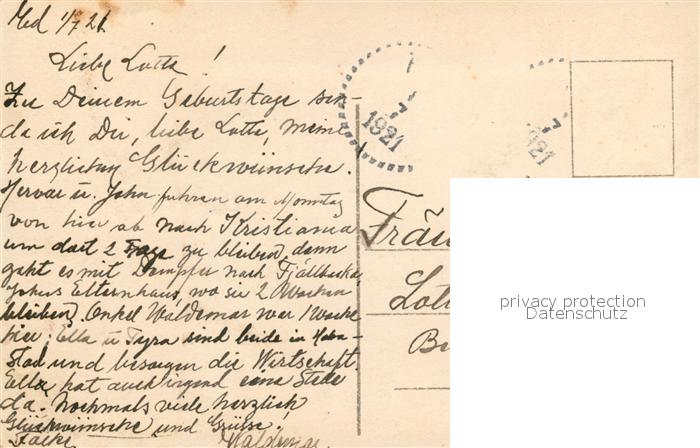 1/7 21
Liebe Lotte !
Zu Deinem Geburtstage sen-
da ich Dir, liebe Lotte, meine
herzlichen Glückwünsche.
u. John fuhren am Monntag
von hier ab nach Kristiania
um dort 2 Tage zu bleiben, dann
geht es mit Dampfer nach Fjällbacka,
Johns Elternhaus, wo sie 2 Wochen
bleiben. Onkel Waldemar war 1 Woche
hier. Ella u Tyra sind beide in
stad und besorgen die Wirtschaft.
Ella hat auch irgend eine Stelle
da. Nochmals viele herzlich
Glückwünsche und Grüsse.
Waldemar
1921
1921
Fräu
Lot
privacy protection
Datenschutz